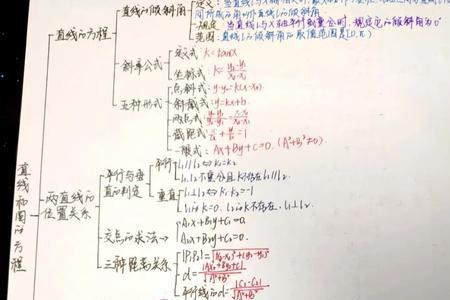 直线的倾斜角
规定：当直线l与x轴平行或重合时，规定它的倾斜角为0°
范围：直线l的倾斜角的取值范围是[0,π)
直线的方程
斜率公式
定义式：k=tanα
坐标式：k=\frac{y₂-y₁}{x₂-x₁}
五种形式
点斜式：y-y₀=k(x-x₀)
斜截式：y=kx+b
两点式：\frac{y-y₁}{y₂-y₁}=\frac{x-x₁}{x₂-x₁}
截距式：\frac{x}{a}+\frac{y}{b}=1
一般式：Ax+By+C=0. (A²+B²≠0).
直线和圆的方程
两直线的位置关系
平行与垂直的判定
平行
l₁∥l₂⇔k₁=k₂
l₁,l₂不重合且k不存在l₁∥l₂
垂直
l₁⊥l₂⇔k₁·k₂=-1
l₁的k=0. l₂的k不存在, l₁⊥l₂
交点的求法→
A₁x+B₁y+C₁=0.
A₂x+B₂y+C₂=0.
三种距离关系
|P₁P₂|=√(x₂-x₁)²+(y₂-y₁)²
d=\frac{|Ax₀+By₀+C|}{√A²+B²}
平行线的d=\frac{|C₁-C₂|}{√A²+B²}